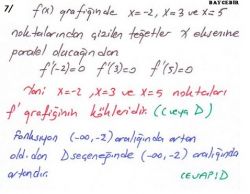 BAYCEBİR
7/ f(x) grafiğinde x=-2, x=3 ve x=5
noktalarından çizilen teğetler x eksenine
paralel olacağından
f'(-2)=0 f'(3)=0 f'(5)=0
Yani x=-2, x=3 ve x=5 noktaları
f' grafiğinin kökleridir. (C veya D)
Fonksiyon (-∞,-2) aralığında artan
old.dan D seçeneğinde (-∞,-2) aralığında
artandır. CEVAP:D